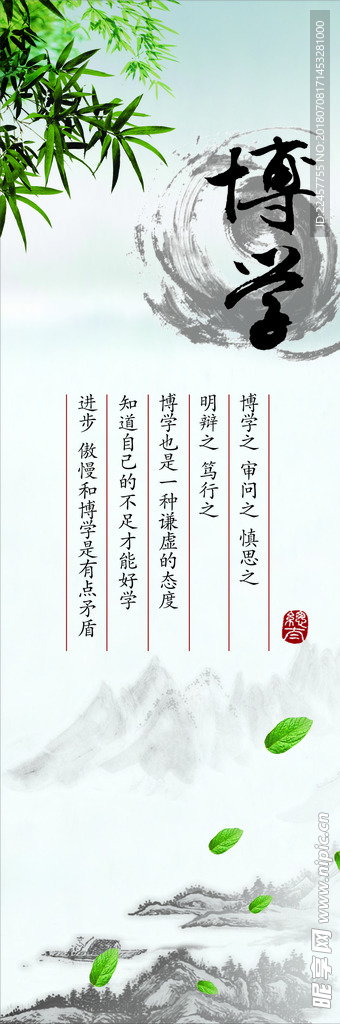 博学
博学之 审问之 慎思之
明辩之 笃行之
博学也是一种谦虚的态度
知道自己的不足才能好学
进步 傲慢和博学是有点矛盾
ID:22457755 NO:20180708171453281000
昵享网 www.nipic.cn